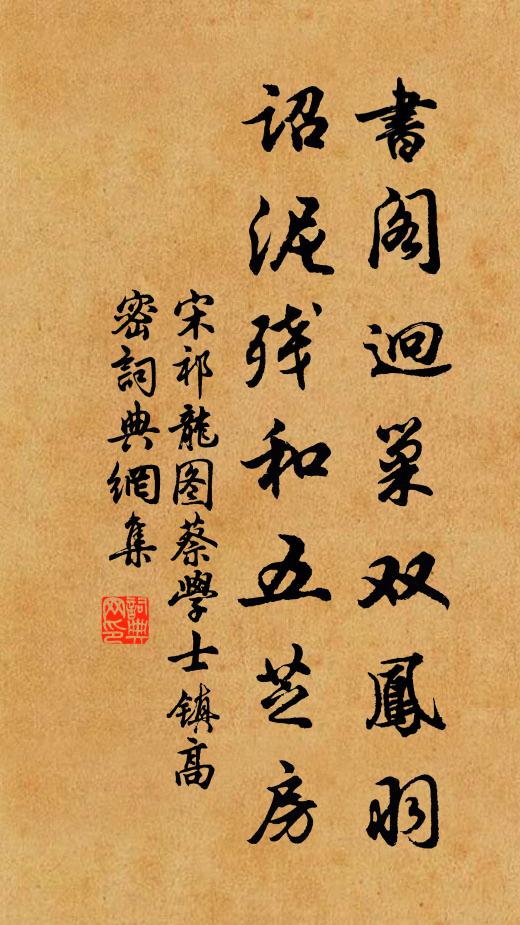 書阁迥巢双鳳羽
诏泥残和五芝房
宋祁龍图蔡學士镇高
密詞典網集
詞典
网印